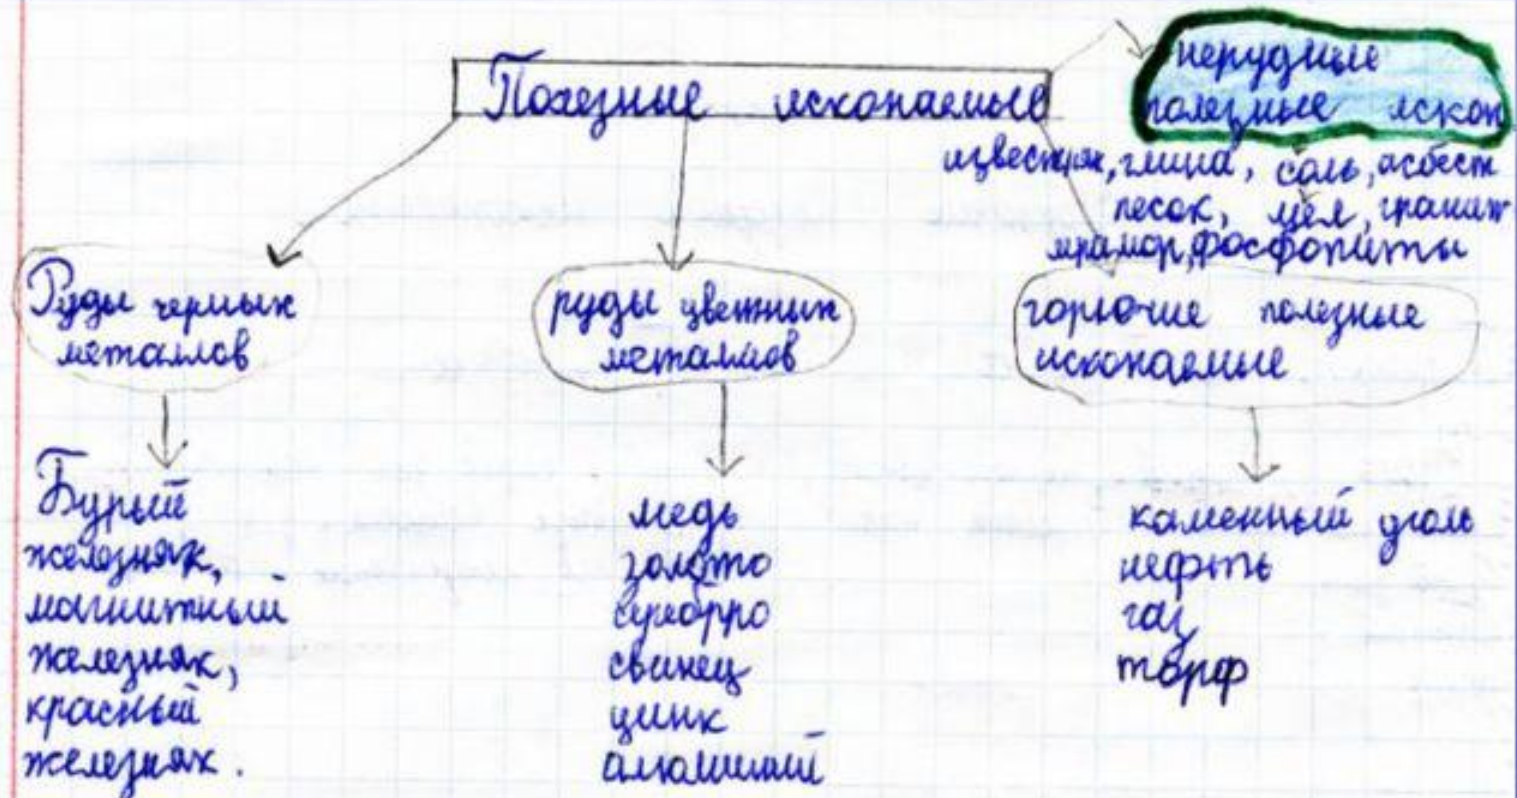 Полезные ископаемые
нерудные
полезные ископ
известняк, глина, соль, асбест
песок, мел, гранит
мрамор, фосфориты
Руды черных
металлов
руды цветных
металлов
горючие полезные
ископаемые
Бурый
железняк,
магнитный
железняк,
красный
железняк.
медь
золото
серебро
свинец
цинк
алюминий
каменный уголь
нефть
газ
торф